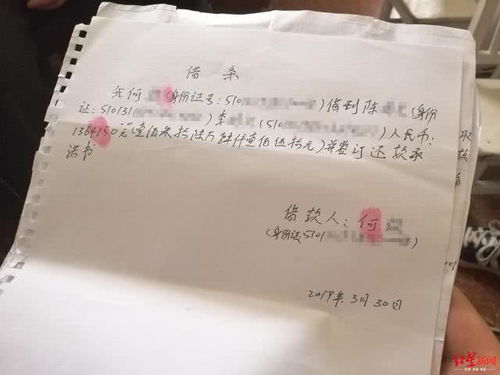 借条
兵何 身份证号:510 )借到陈 (身份
证:510131 李 ( )人民币:
1364150元(壹佰叁拾陆万肆仟壹佰伍拾元)并签订还款承
诺书
借款人:何
(身份证5101 )
2019年3月30日
红星新闻